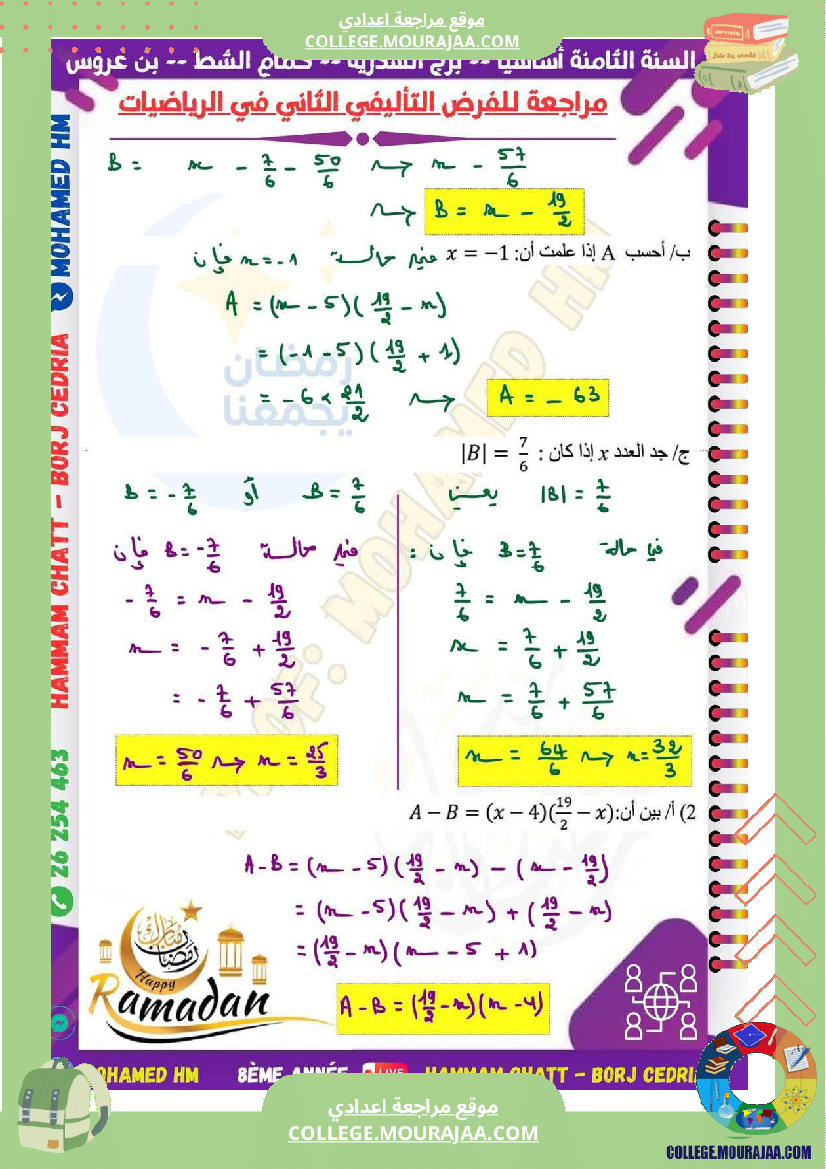 موقع مراجعة اعدادي
COLLEGE.MOURAJAA.COM
السنة الثامنة أساسيا -- برج السدرية -- حمام الشط -- بن عروس
مراجعة للفرض التأليفي الثاني في الرياضيات
B = x - 7/6 - 50/6 ⇝ x - 57/6
⇝ B = x - 19/2
ب/ أحسب A إذا علمت أن: x = −1
في حالة x = -1 فإن
A = (x - 5)(19/2 - x)
= (-1 - 5)(19/2 + 1)
= - 6 × 21/2 ⇝ A = - 63
رمضان
يجمعنا
ج/ جد العدد x إذا كان : |B| = 7/6
|B| = 7/6 يعني B = 7/6 أو B = - 7/6
في حالة B = 7/6 فإن :
7/6 = x - 19/2
x = 7/6 + 19/2
x = 7/6 + 57/6
x = 64/6 ⇝ x = 32/3
في حالة B = -7/6 فإن
- 7/6 = x - 19/2
x = - 7/6 + 19/2
= - 7/6 + 57/6
x = 50/6 ⇝ x = 25/3
2) أ/ بين أن: A − B = (x − 4)(19/2 − x)
A - B = (x - 5)(19/2 - x) - (x - 19/2)
= (x - 5)(19/2 - x) + (19/2 - x)
= (19/2 - x)(x - 5 + 1)
A - B = (19/2 - x)(x - 4)
MOHAMED HM
HAMMAM CHATT - BORJ CEDRIA
26 254 463
OF: MOHAMED HM
رمضان مبارك
Happy
Ramadan
MOHAMED HM 8ÈME ANNÉE LIVE HAMMAM CHATT - BORJ CEDRIA
موقع مراجعة اعدادي
COLLEGE.MOURAJAA.COM
COLLEGE.MOURAJAA.COM